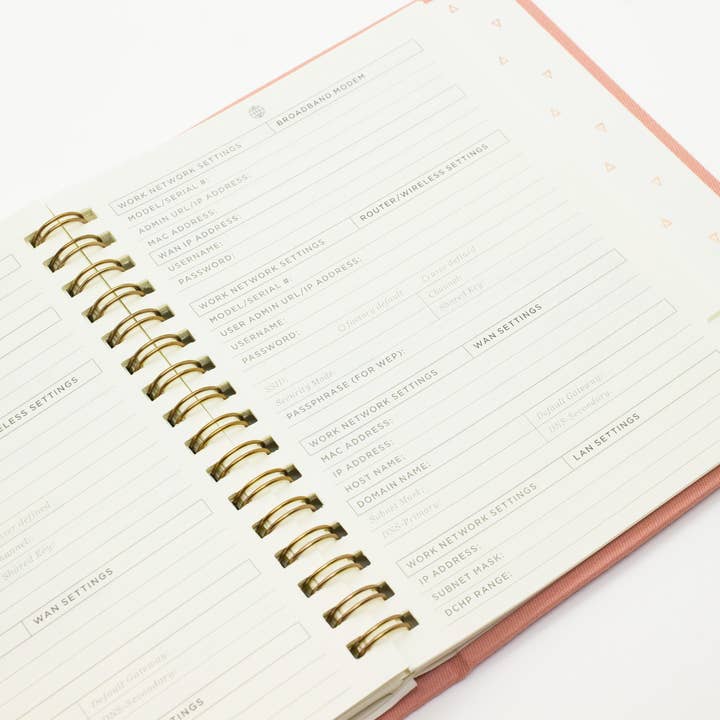 ELESS SETTINGS
ser defined
hannel:
Shared Key:
WAN SETTINGS
Default Gateway:
DNS-Secondary:
SETTINGS
WORK NETWORK SETTINGS BROADBAND MODEM
MODEL/SERIAL #:
ADMIN URL/IP ADDRESS:
MAC ADDRESS:
WAN IP ADDRESS:
USERNAME:
PASSWORD:
WORK NETWORK SETTINGS ROUTER/WIRELESS SETTINGS
MODEL/SERIAL #:
USER ADMIN URL/IP ADDRESS:
USERNAME:
PASSWORD: factory default user defined
SSID: Channel:
Security Mode Shared Key:
PASSPHRASE (FOR WEP):
WORK NETWORK SETTINGS WAN SETTINGS
MAC ADDRESS:
IP ADDRESS:
HOST NAME:
DOMAIN NAME:
Subnet Mask: Default Gateway:
DNS-Primary: DNS-Secondary:
WORK NETWORK SETTINGS LAN SETTINGS
IP ADDRESS:
SUBNET MASK:
DCHP RANGE: